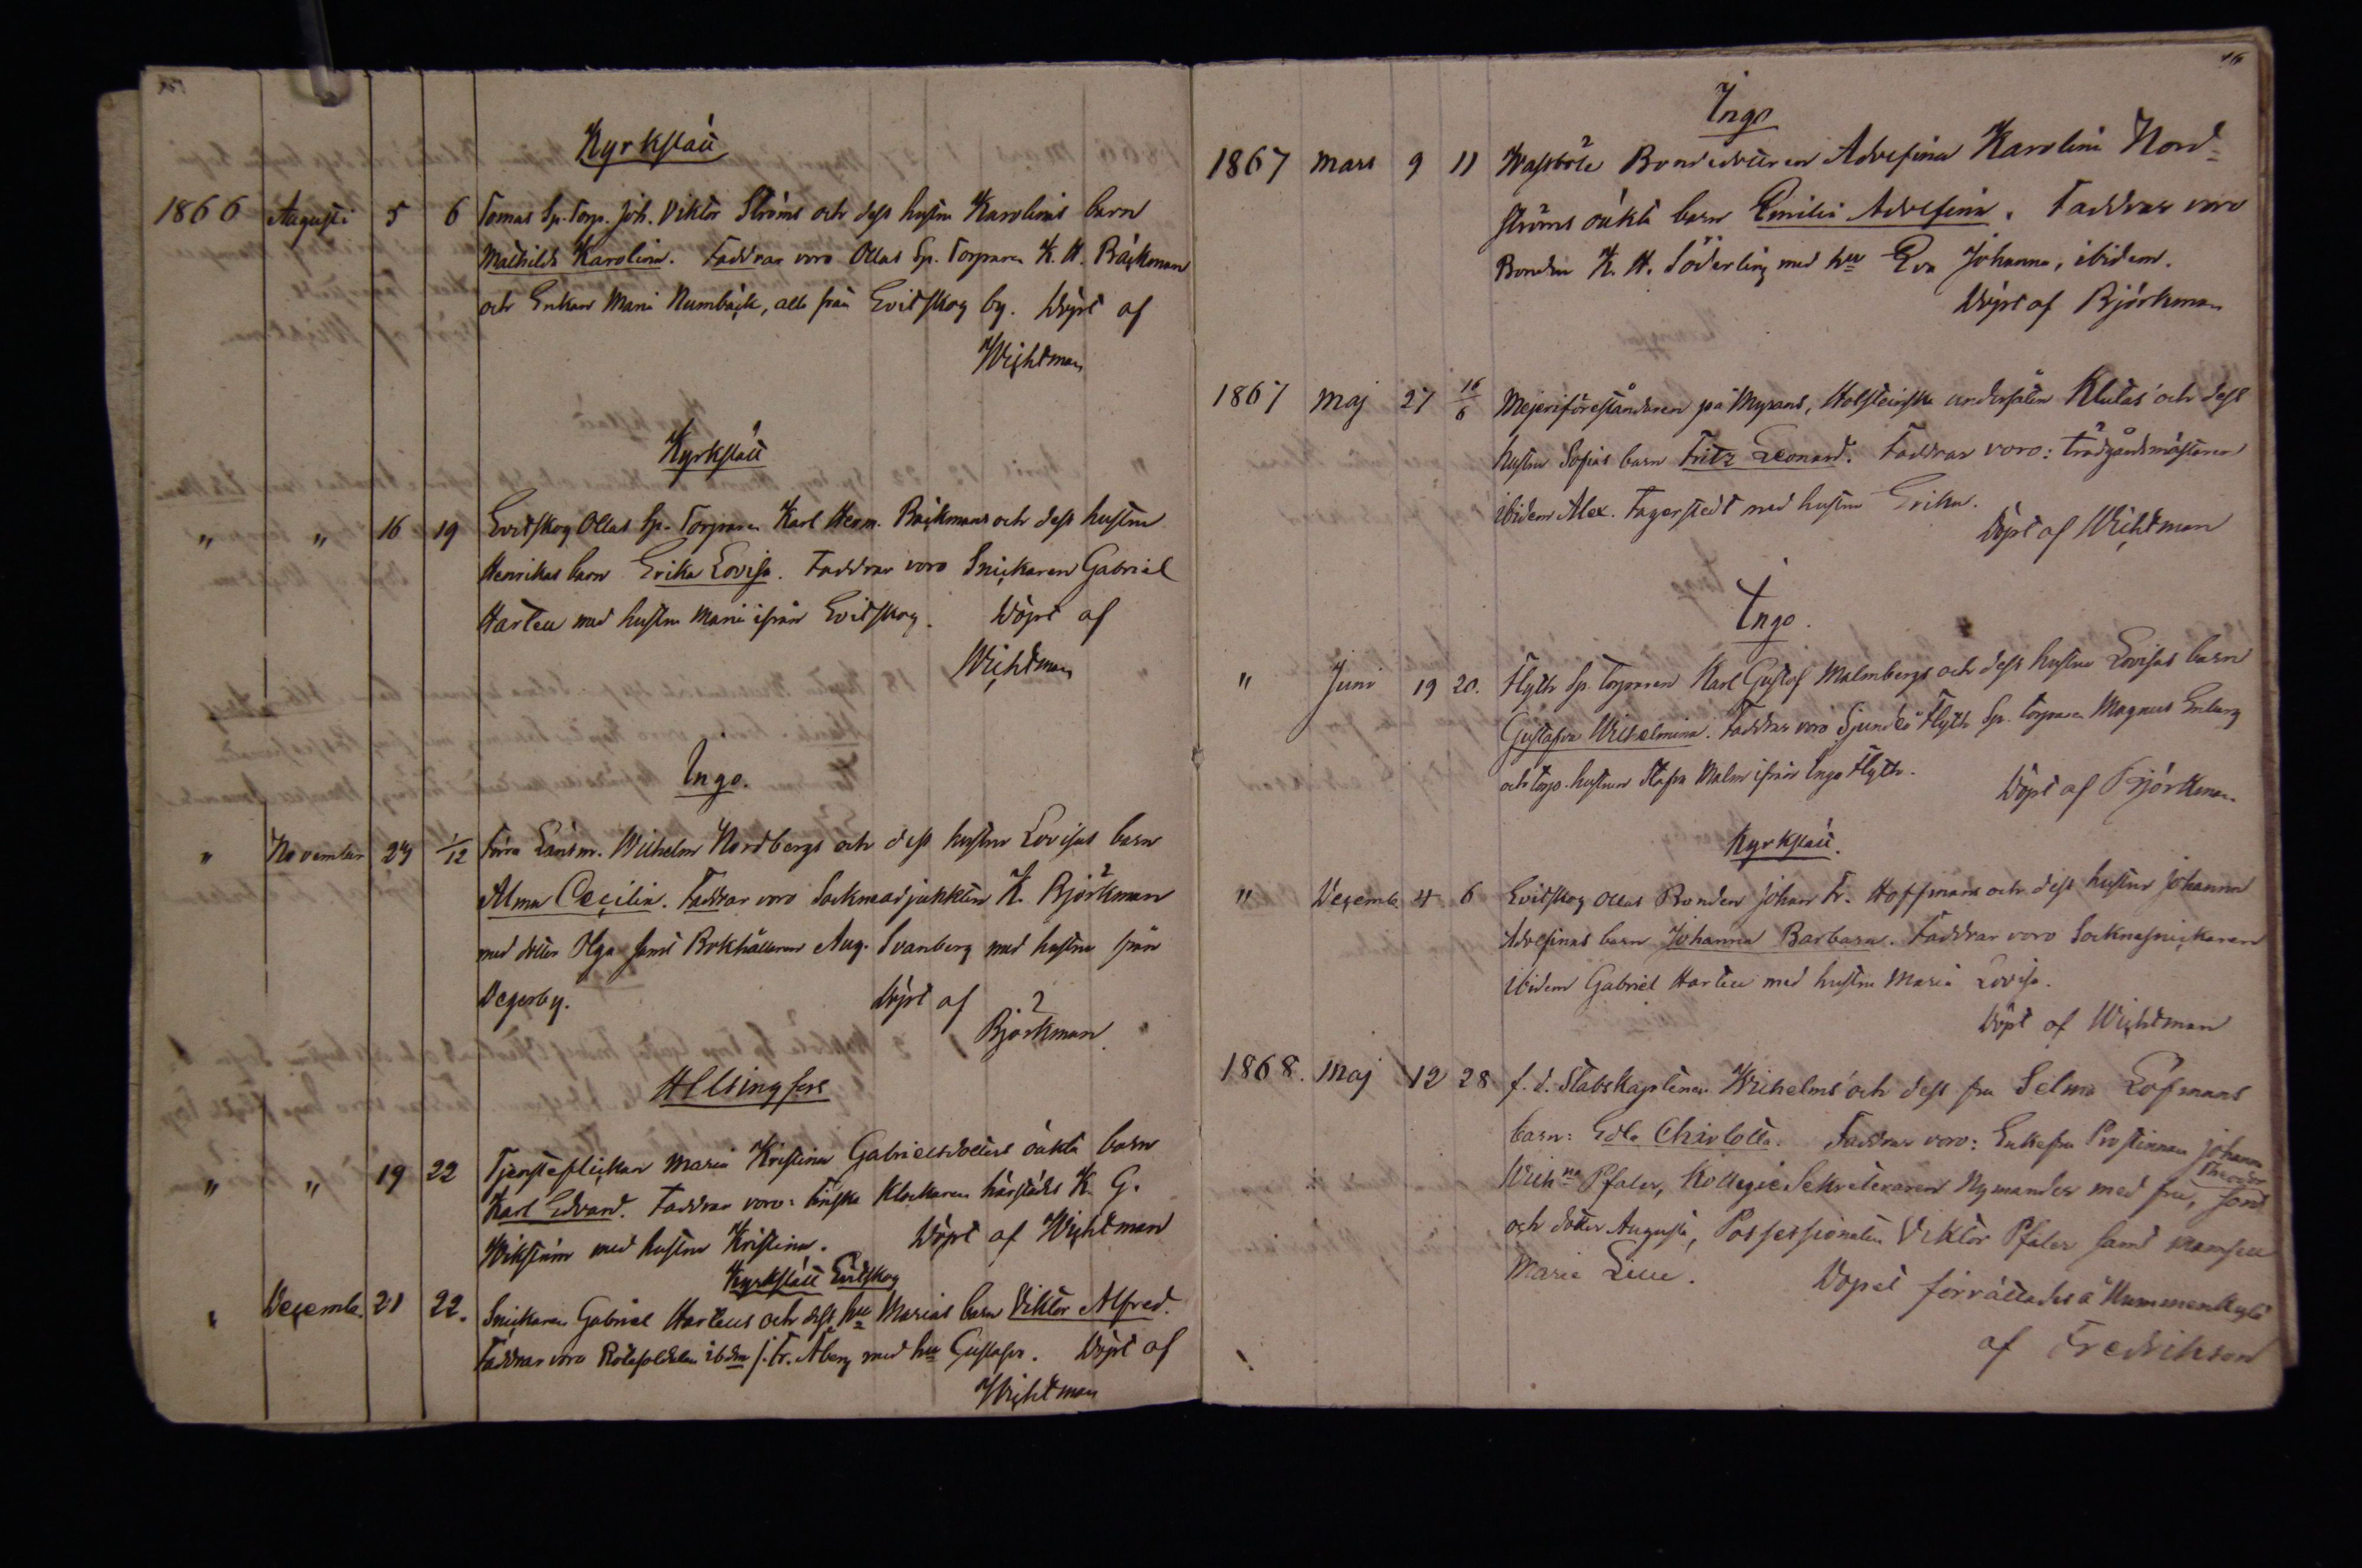 Kyrkslätt
1866 Augusti 5 6 Tomas Sp. Torp. Joh. Viktor Ströms och dess hustru Karolinas barn
Mathilda Karolina. Faddrar voro Ollas Sp. Torparen K. H. Bäckman
och Enkan Maria Numbäck, alla från Evitskog by. Döpt af
Wichtman
Kyrkslätt
" " 16 19 Evitskog Ollas Sp. Torparen Karl Herm. Bäckmans och dess hustru
Henrikas barn Erika Lovisa. Faddrar voro Snickaren Gabriel
Harteu med hustru Maria ifrån Evitskog. Döpt af
Wichtman
Ingo.
" November 29 1/12 Förra Länsm. Wilhelm Nordbergs och dess hustru Lovisas barn
Alma Cecilia. Faddrar voro Sockneadjunkten K. Björkman
med dotter Olga samt Bokhållaren Aug. Svanberg med hustru från
Degerby. Döpt af
Björkman.
Helsingfors
" " 19 22 Tjensteflickan Maria Kristina Gabrielsdotters oäkta barn
Karl Edvard. Faddrar voro: finska Klockaren härstädes K. G.
Wikström med hustru Kristina. Döpt af Wichtman
Kyrkslätt Evitskog
" Decemb. 21 22. Snickaren Gabriel Harteus och dess hu Marias barn Viktor Alfred.
Faddrar voro Rotesoldaten ibdm J. Fr. Åberg med hu Gustafva. Döpt af
Wichtman
16
Ingo
1867 Mars 9 11 Wassböle Bondedottren Adolfina Karolina Nord=
ströms oäkta barn Emilia Adolfina. Faddrar voro
Bonden K. H. Söderling med hu Eva Johanna, ibidem.
Döpt af Björkman
1867 Maj 27 16/6 Mejeriföreståndaren på Myrans, Holsteinska undersåten Klutas och dess
hustru Sofias barn Fritz Leonard. Faddrar voro: trädgårdsmästaren
ibidem Alex. Fagerstedt med hustru Erika.
Döpt af Wichtman
Ingo.
" Juni 19 20. Flyth Sp. torparen Karl Gustaf Malmbergs och dess hustru Lovisas barn
Gustafva Wilhelmina. Faddrar voro Sjundeå Flyth Sp. torparen Magnus Enberg
och torp. hustrun Stafva Malm ifrån Ingo Flyth.
Döpt af Björkman
Kyrkslätt.
" Decemb. 4 6 Evitskog Ollas Bonden Johan Fr. Hoffmans och dess hustru Johanna
Adolfinas barn Johanna Barbara. Faddrar voro Socknesnickaren
ibidem Gabriel Harteu med hustru Maria Lovisa.
Döpt af Wichtman
1868. Maj 12 28 f. d. Stabskaptenen Wilhelms och dess fru Selma Löfmans
barn: Edla Charlotta. Faddrar voro: Enkefru Prostinnan Johanna
Wilhna Pfaler, Kollegie Sekreteraren Nymander med fru, son Theodor
och dotter Augusta, Possessionaten Viktor Pfaler samt mamsell
Maria Lille. Dopet förrättades å Hummerkylä
af Fredrikson